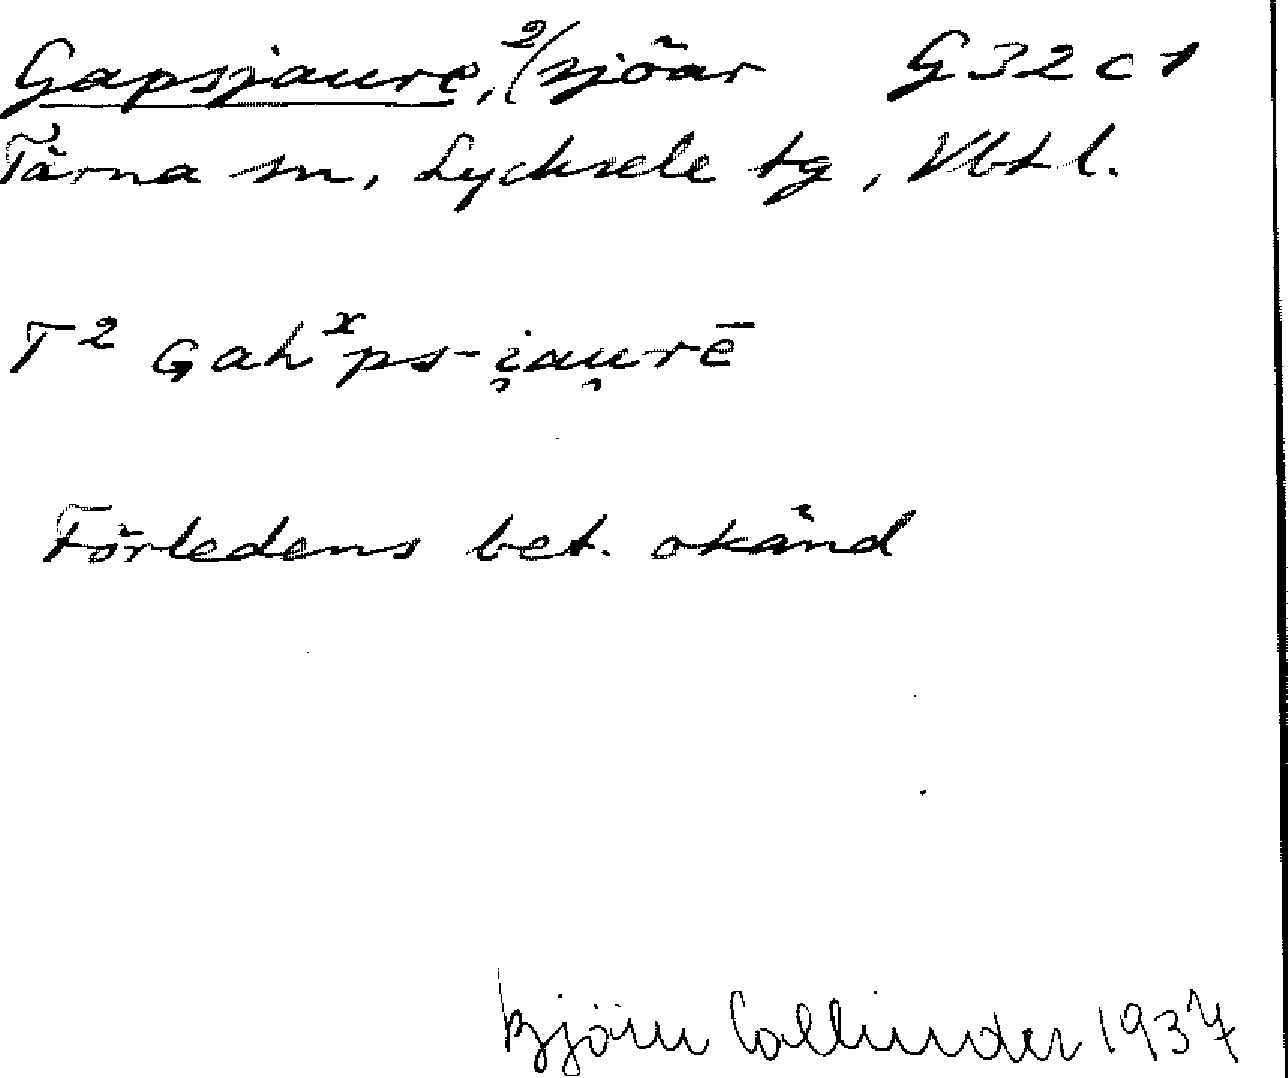 Gapsjaure, 2/sjöar G32c1
Tärna sn, Lycksele tg, Vbtl.
T² Gahˣps-i̯au̯rē
Förledens bet. okänd
Björn Collinder 1937